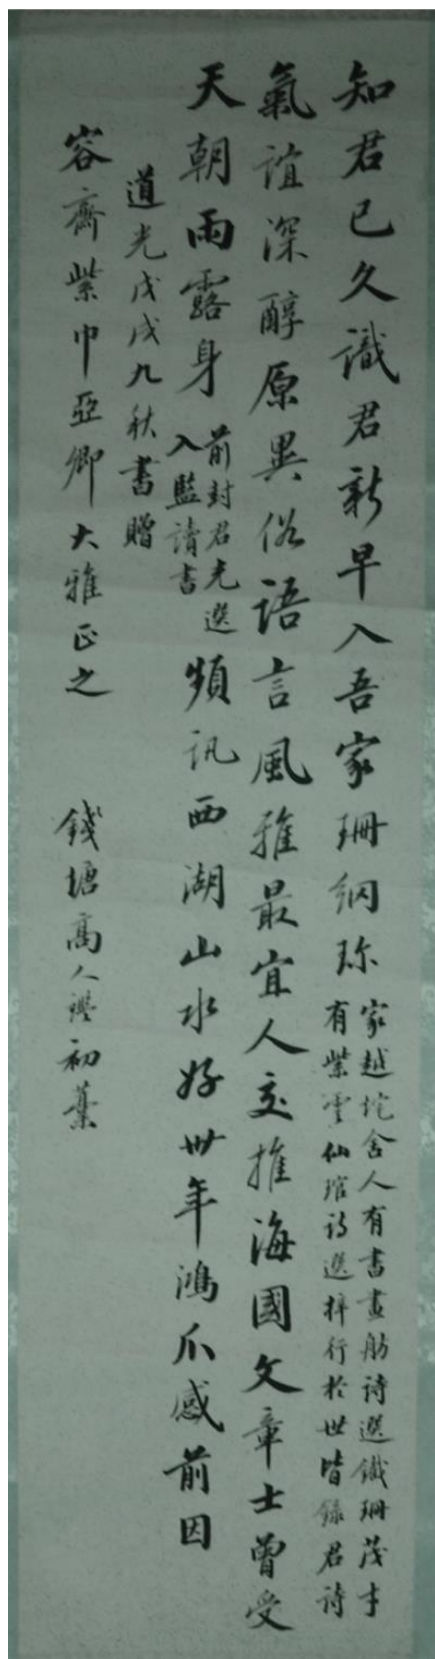 知君已久識君新早入吾家珊網珎
家越垞舍人有書畫舫詩選鐵珊茂才
有紫雲仙琯詩選梓行於世皆錄君詩
氣誼深醇原異俗語言風雅最宜人交推海國文章士曾受
天朝雨露身
前封君充選
入監讀書
頻訊西湖山水好卅年鴻爪感前因
道光戊戌九秋書贈
容齋紫巾亞卿大雅正之
錢塘高人鑑初藁